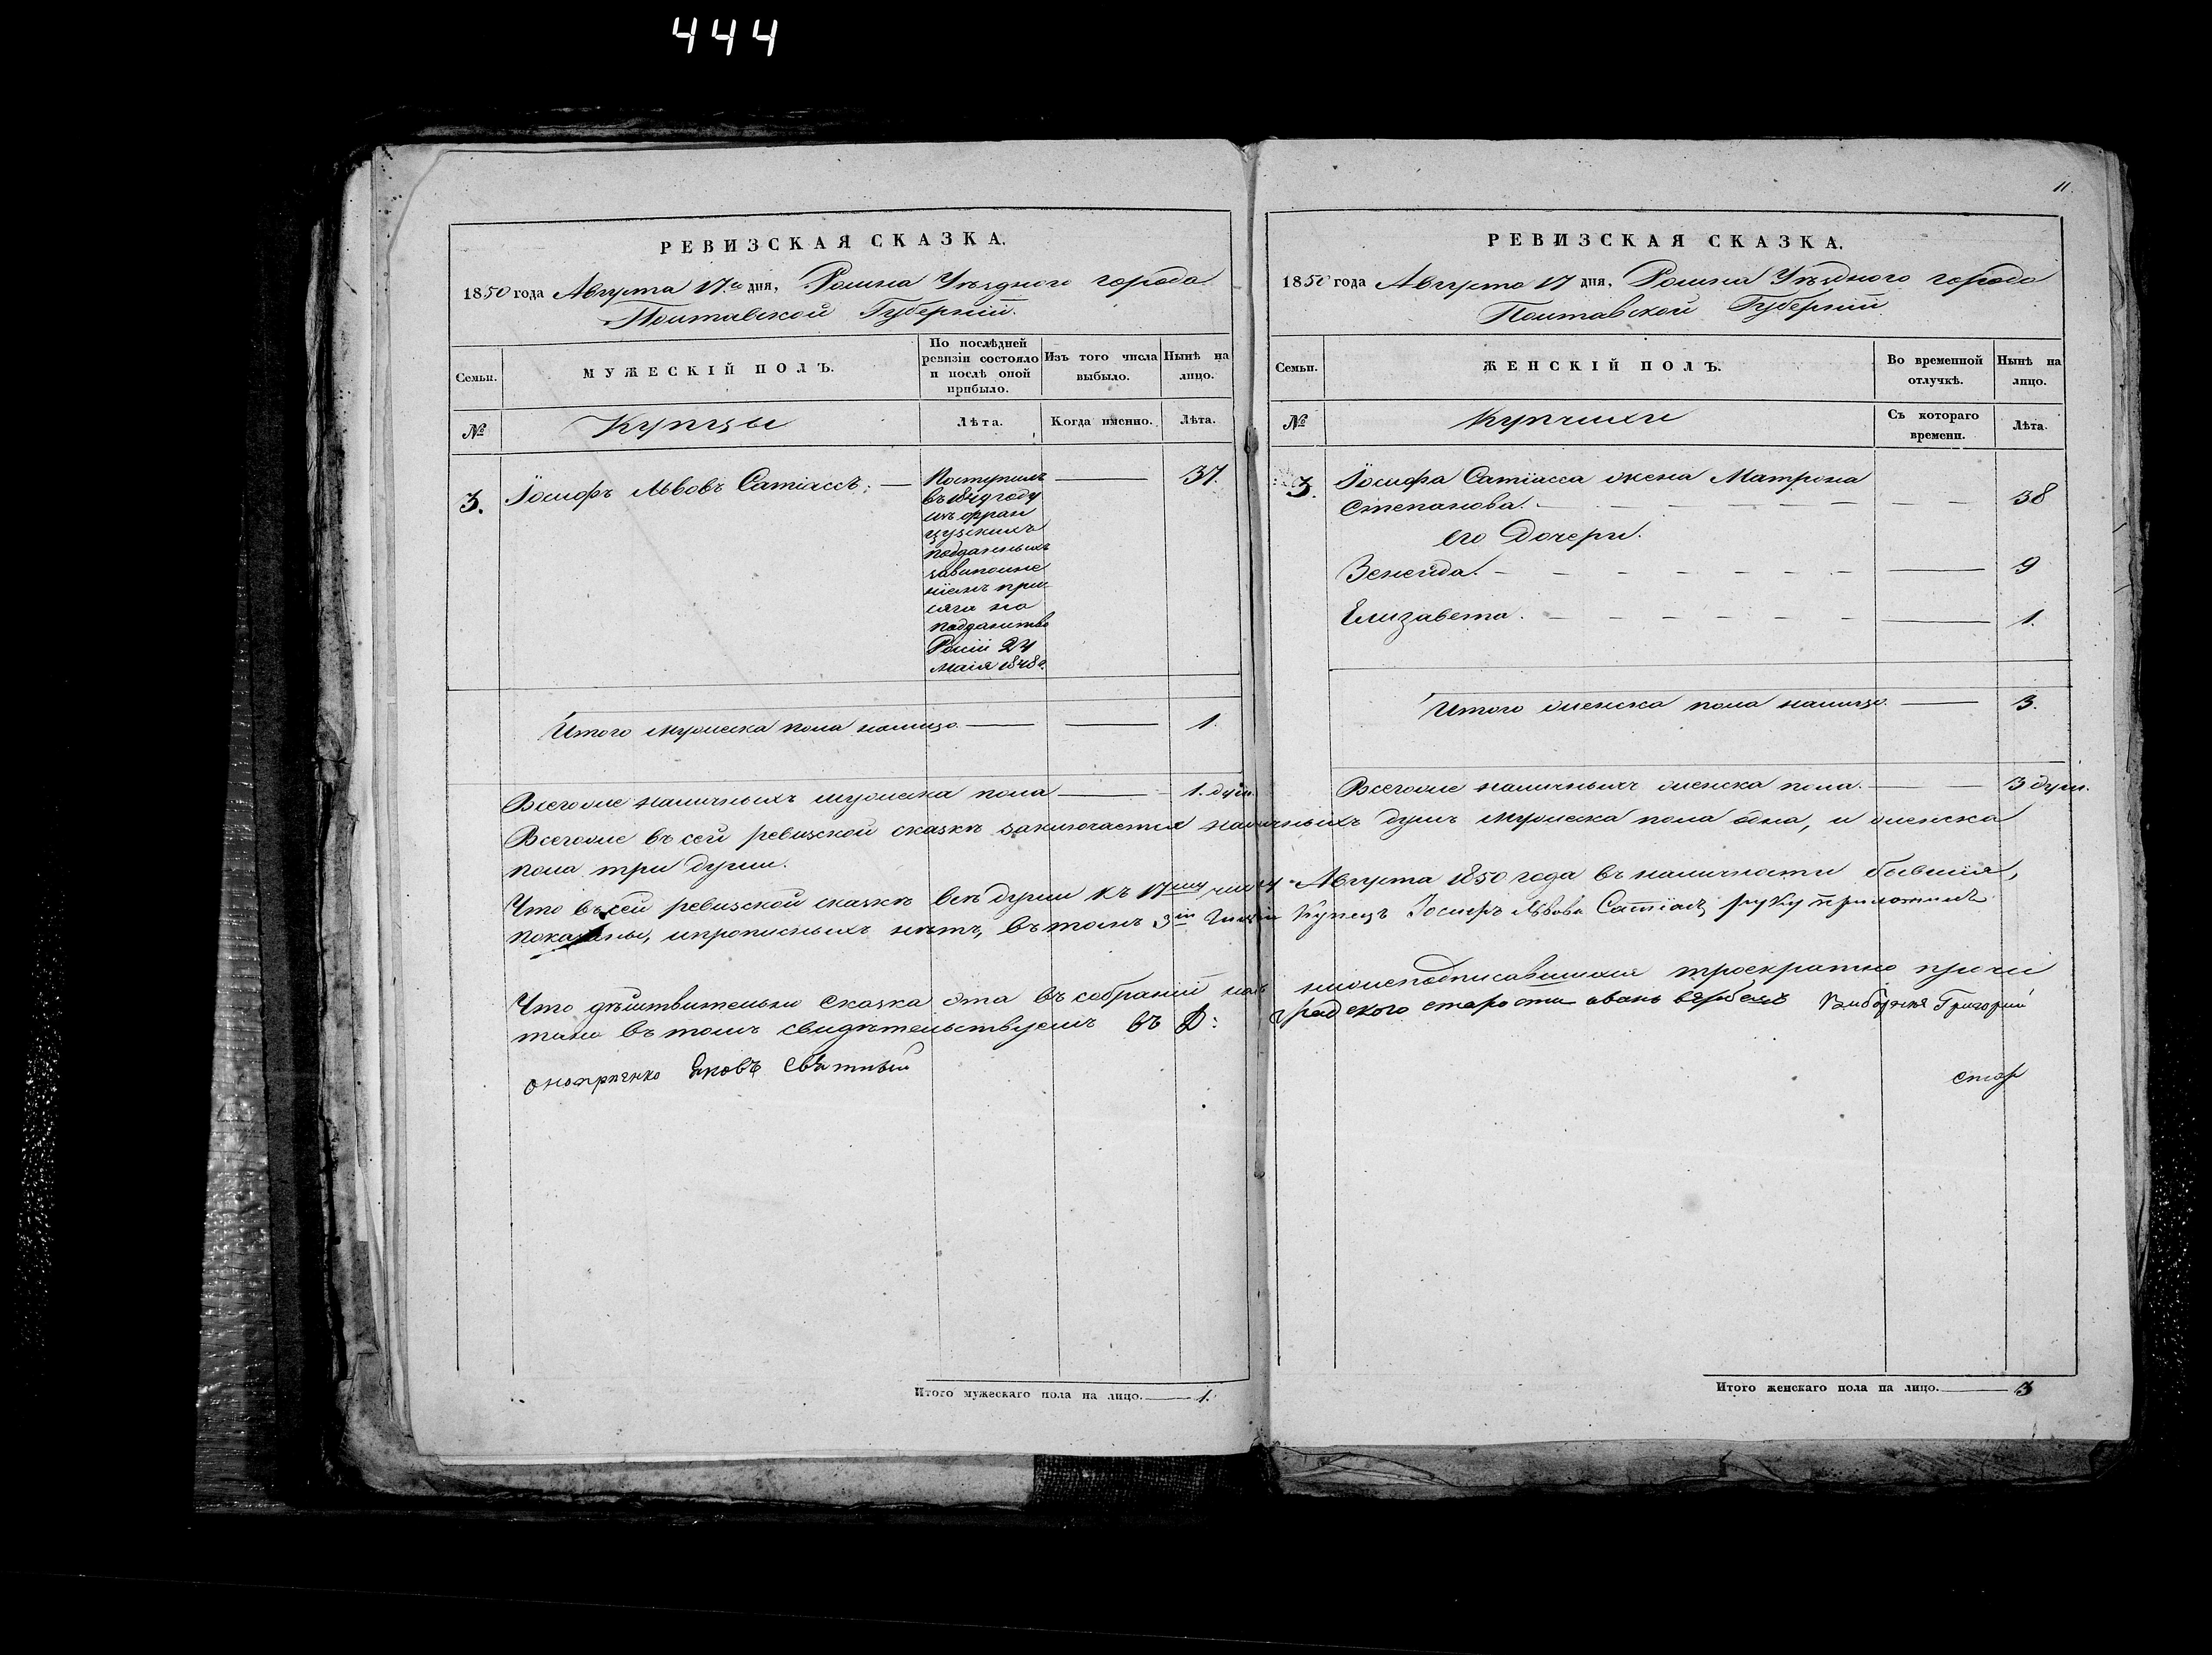 444
РЕВИЗСКАЯ СКАЗКА.
1850 года Августа 17го дня, Ромна Уѣзднаго города
Полтавской Губерніи.
Семьи.
МУЖЕСКІЙ ПОЛЪ.
По послѣдней ревизіи состояло и послѣ оной прибыло.
Изъ того числа выбыло.
Нынѣ на лицо.
№
Купцы
Лѣта.
Когда именно.
Лѣта.
3.
Іосифъ Львовъ Сатіассъ.
Поступилъ
въ 1849 году
изъ фран
цузскихъ
подданныхъ
завыполне
ніемъ при
сяги на
подданство
Росіи 24
Маія 1848г.
37.
Итого мужеска пола налицо 1.
Всегоже наличныхъ мужеска пола 1. душ.
11.
РЕВИЗСКАЯ СКАЗКА.
1850 года Августа 17 дня, Ромна Уѣзднаго города
Полтавской Губерніи
Семьи.
ЖЕНСКІЙ ПОЛЪ.
Во временной отлучкѣ.
Нынѣ на лицо.
№
Купчихи
Съ котораго времени.
Лѣта.
3.
Іосифа Сатіасса жена Матрона
Степанова. 38
его Дочери.
Зенеида. 9
Елизавета. 1.
Итого женска пола налицо. 3.
Всегоже наличныхъ женска пола. 3 душ.
Всегоже въ сей ревизской сказкѣ заключается наличныхъ душъ мужеска пола одна, и женска
пола три души.
Что въ сей ревизской сказкѣ всѣ души къ 17му числу Августа 1850 года въ наличности бывшія,
показаны, ипрописныхъ нѣтъ, въ томъ 3й Гильдіи Купецъ Іосифъ Львовъ Сатіасъ руку приложилъ
Что дѣйствительно сказка эта въ собраніи нижеподписавшихся троекратно прочи
тана въ томъ свидѣтельствуемъ въ Д: градского старости Выборныя Григорий
Яковъ
Итого мужескаго пола на лицо. 1.
Итого женскаго пола на лицо. 3